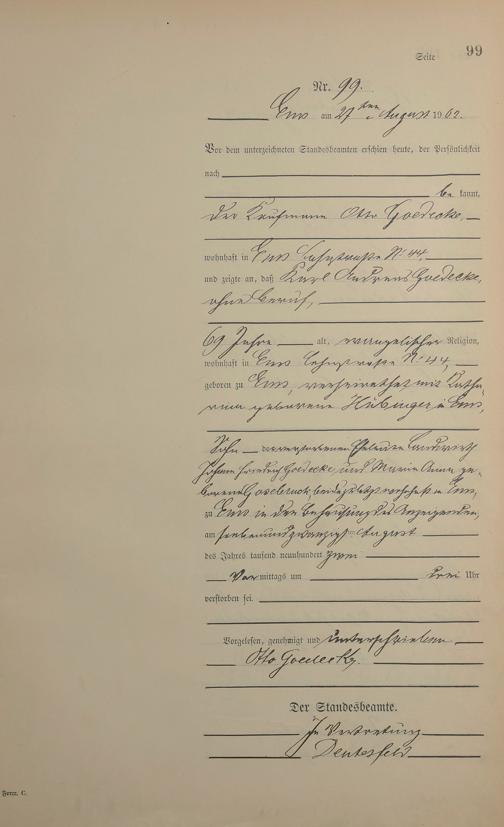 Seite 99
Nr. 99.
Ems am 27ten August 1902.
Vor dem unterzeichneten Standesbeamten erschien heute, der Persönlichkeit
nach
be kannt,
der Kaufmann Otto Goedecke,
wohnhaft in Ems Lahnstraße No 44,
und zeigte an, daß Karl Andreas Goedecke,
ohne Beruf,
69 Jahre alt, evangelischer Religion,
wohnhaft in Ems Lahnstraße No 44,
geboren zu Ems, verheirathet mit Katha-
rina geborene Hübinger in Ems,
Sohn der verstorbenen Eheleute Landwirth
Johann Friedrich Goedecke und Maria Anna ge-
borene beide zuletzt wohnhaft in Ems,
zu Ems in der Behausung des Anzeigenden,
am siebenundzwanzigten August
des Jahres tausend neunhundert zwei
Vor mittags um drei Uhr
verstorben sei.
Vorgelesen, genehmigt und unterschrieben
Otto Goedecke.
Der Standesbeamte.
In Vertretung
Form. C.